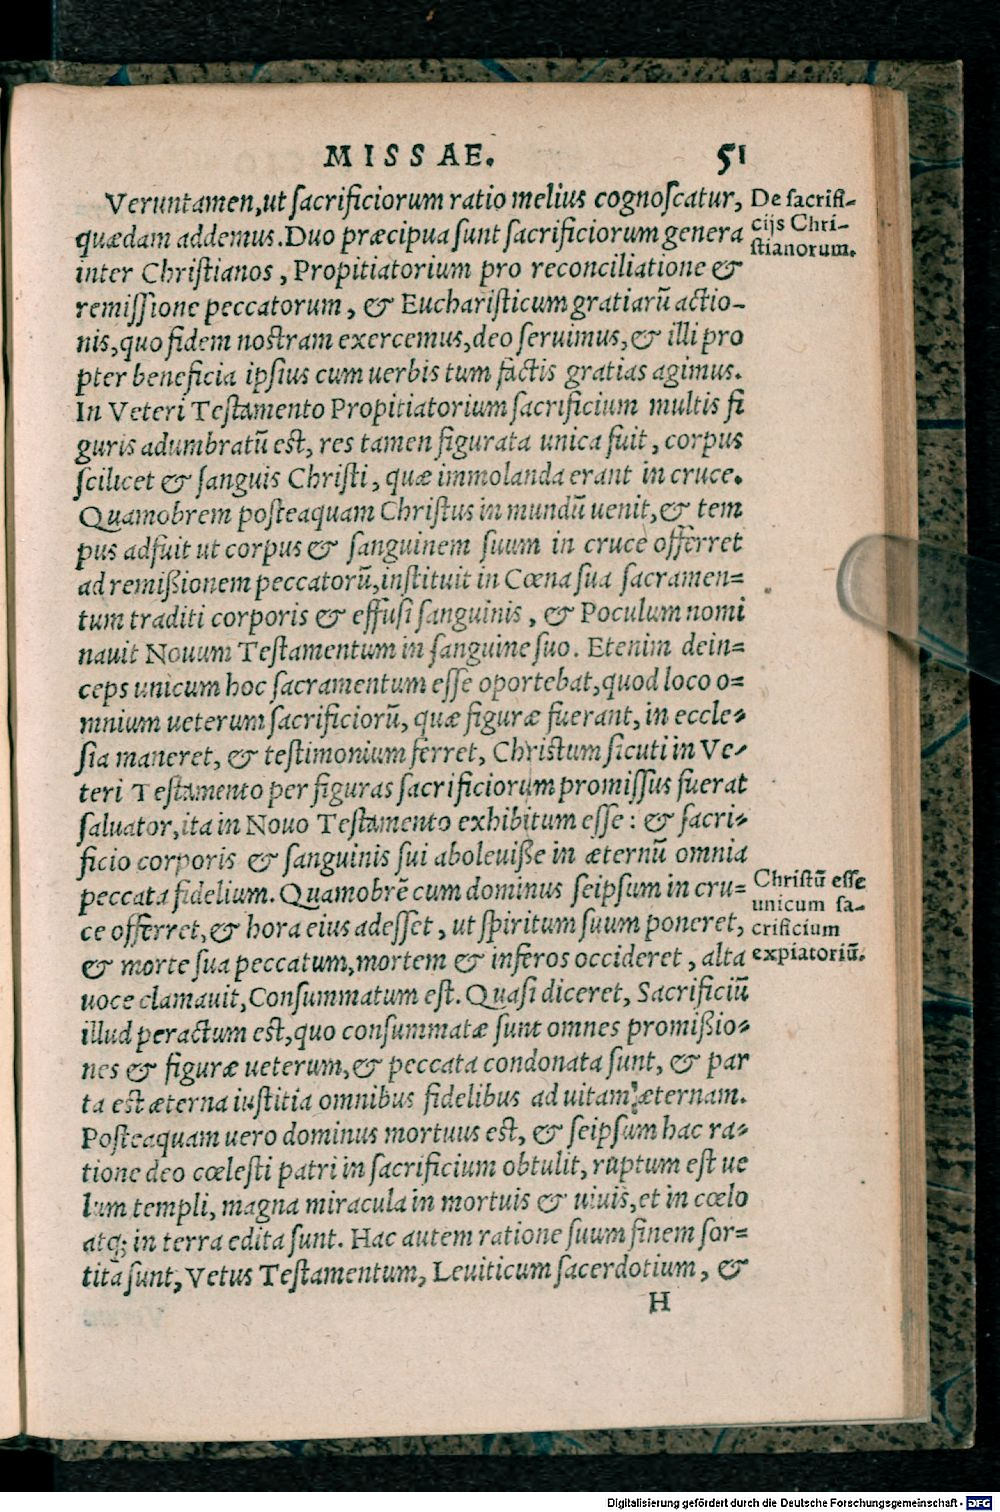 MISSAE. 51
Veruntamen, ut sacrificiorum ratio melius cognoscatur,
quædam addemus. Duo præcipua sunt sacrificiorum genera
inter Christianos, Propitiatorium pro reconciliatione &
remissione peccatorum, & Eucharisticum gratiarū actio-
nis, quo fidem nostram exercemus, deo seruimus, & illi pro
pter beneficia ipsius cum uerbis tum factis gratias agimus.
In Veteri Testamento Propitiatorium sacrificium multis fi
guris adumbratū est, res tamen figurata unica fuit, corpus
scilicet & sanguis Christi, quæ immolanda erant in cruce.
Quamobrem posteaquam Christus in mundū uenit, & tem
pus adfuit ut corpus & sanguinem suum in cruce offerret
ad remißionem peccatorū, instituit in Cœna sua sacramen=
tum traditi corporis & effusi sanguinis, & Poculum nomi
nauit Nouum Testamentum in sanguine suo. Etenim dein=
ceps unicum hoc sacramentum esse oportebat, quod loco o=
mnium ueterum sacrificiorū, quæ figuræ fuerant, in eccle=
sia maneret, & testimonium ferret, Christum sicuti in Ve=
teri Testamento per figuras sacrificiorum promissus fuerat
saluator, ita in Nouo Testamento exhibitum esse: & sacri=
ficio corporis & sanguinis sui aboleuiße in æternū omnia
peccata fidelium. Quamobrē cum dominus seipsum in cru=
ce offerret, & hora eius adesset, ut spiritum suum poneret,
& morte sua peccatum, mortem & inferos occideret, alta
uoce clamauit, Consummatum est. Quasi diceret, Sacrificiū
illud peractum est, quo consummatæ sunt omnes promißio=
nes & figuræ ueterum, & peccata condonata sunt, & par
ta est æterna iustitia omnibus fidelibus ad uitam æternam.
Posteaquam uero dominus mortuus est, & seipsum hac ra=
tione deo cœlesti patri in sacrificium obtulit, ruptum est ue
lum templi, magna miracula in mortuis & uiuis, et in cœlo
atq; in terra edita sunt. Hac autem ratione suum finem sor=
tita sunt, Vetus Testamentum, Leuiticum sacerdotium, &
H
De sacrifi-
cijs Chri-
stianorum.
Christū esse
unicum sa-
crificium
expiatoriū.
Digitalisierung gefördert durch die Deutsche Forschungsgemeinschaft - DFG